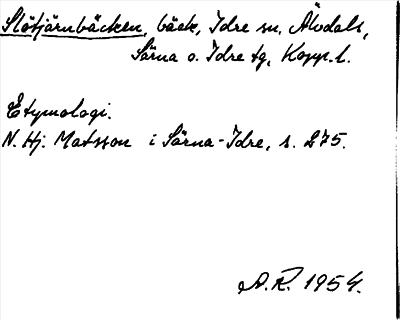 Slötjärnbäcken, bäck, Idre sn, Älvdals,
Särna o. Idre tg, Kopp. l.
Etymologi.
N. Hj. Matsson i Särna-Idre, s. 275.
A.R. 1954.